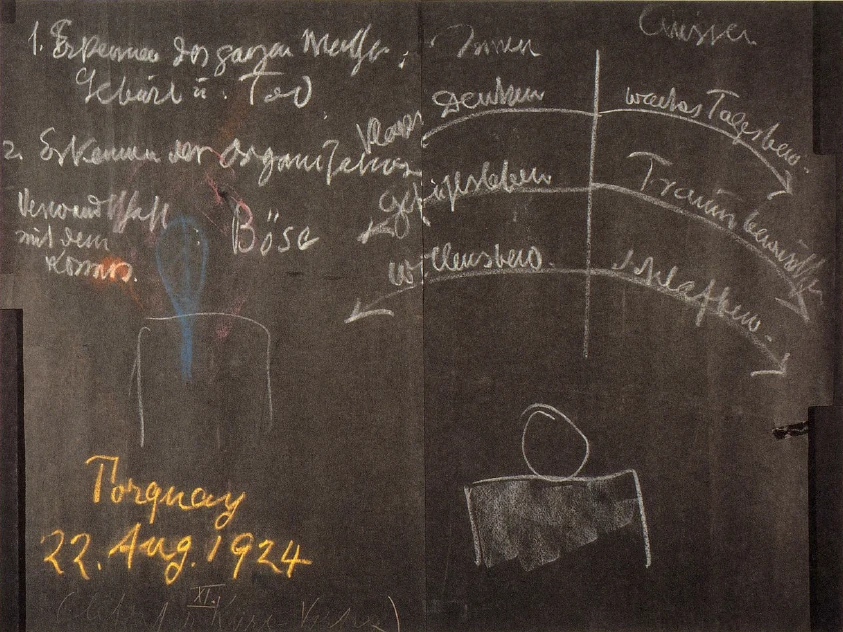 1. Erkennen des ganzen Mensch.:
Geburt u. Tod
2. Erkennen der Organisation
Verwandtschaft
mit dem
Kosmos.
Böse
Torquay
22. Aug. 1924
XI.
Innen
Denken
waches Tagesbew.
Gefühlsleben
Traumbewußts.
Willensbew.
Schlafbew.